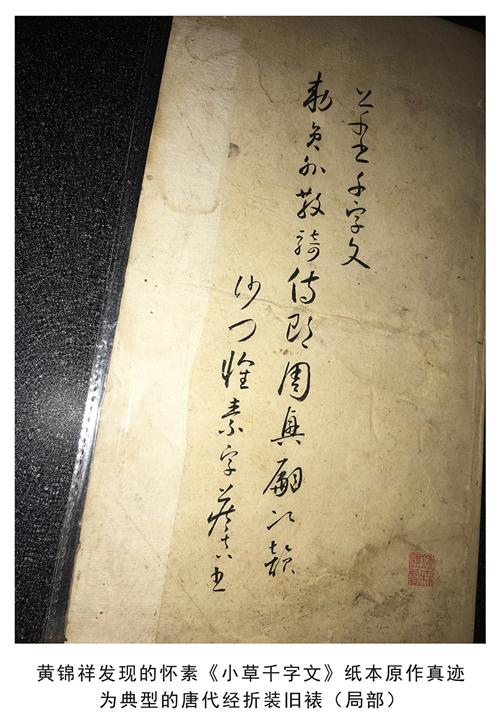 草書千字文
勅員外散騎侍郎周興嗣次韻
沙門懷素字藏真書
黄锦祥发现的怀素《小草千字文》纸本原作真迹
为典型的唐代经折装旧裱（局部）